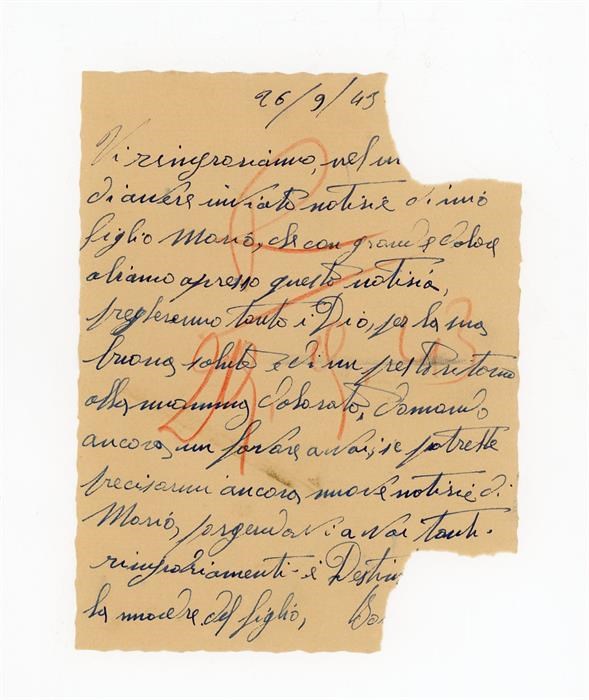 26/9/43
Vi ringroniamo, nel
di avere inviato notisie di mio
figlio Mario, che con grande dolore
abiamo apresso questa notisia,
pregheremo tanto i Dio, per la sua
buona salute e di un presto ritorno
alla mamma dolorata, domando
ancora un favore a voi, se potreste
precisarmi ancora nuove notisie di
Mario, porgendovi a voi tanti
ringraziamenti e
la madre del figlio,
29. 9. 43